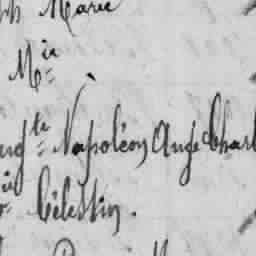 ph Marie
M.ie
Aug.te Napoléon Ange Charl
Célestin.